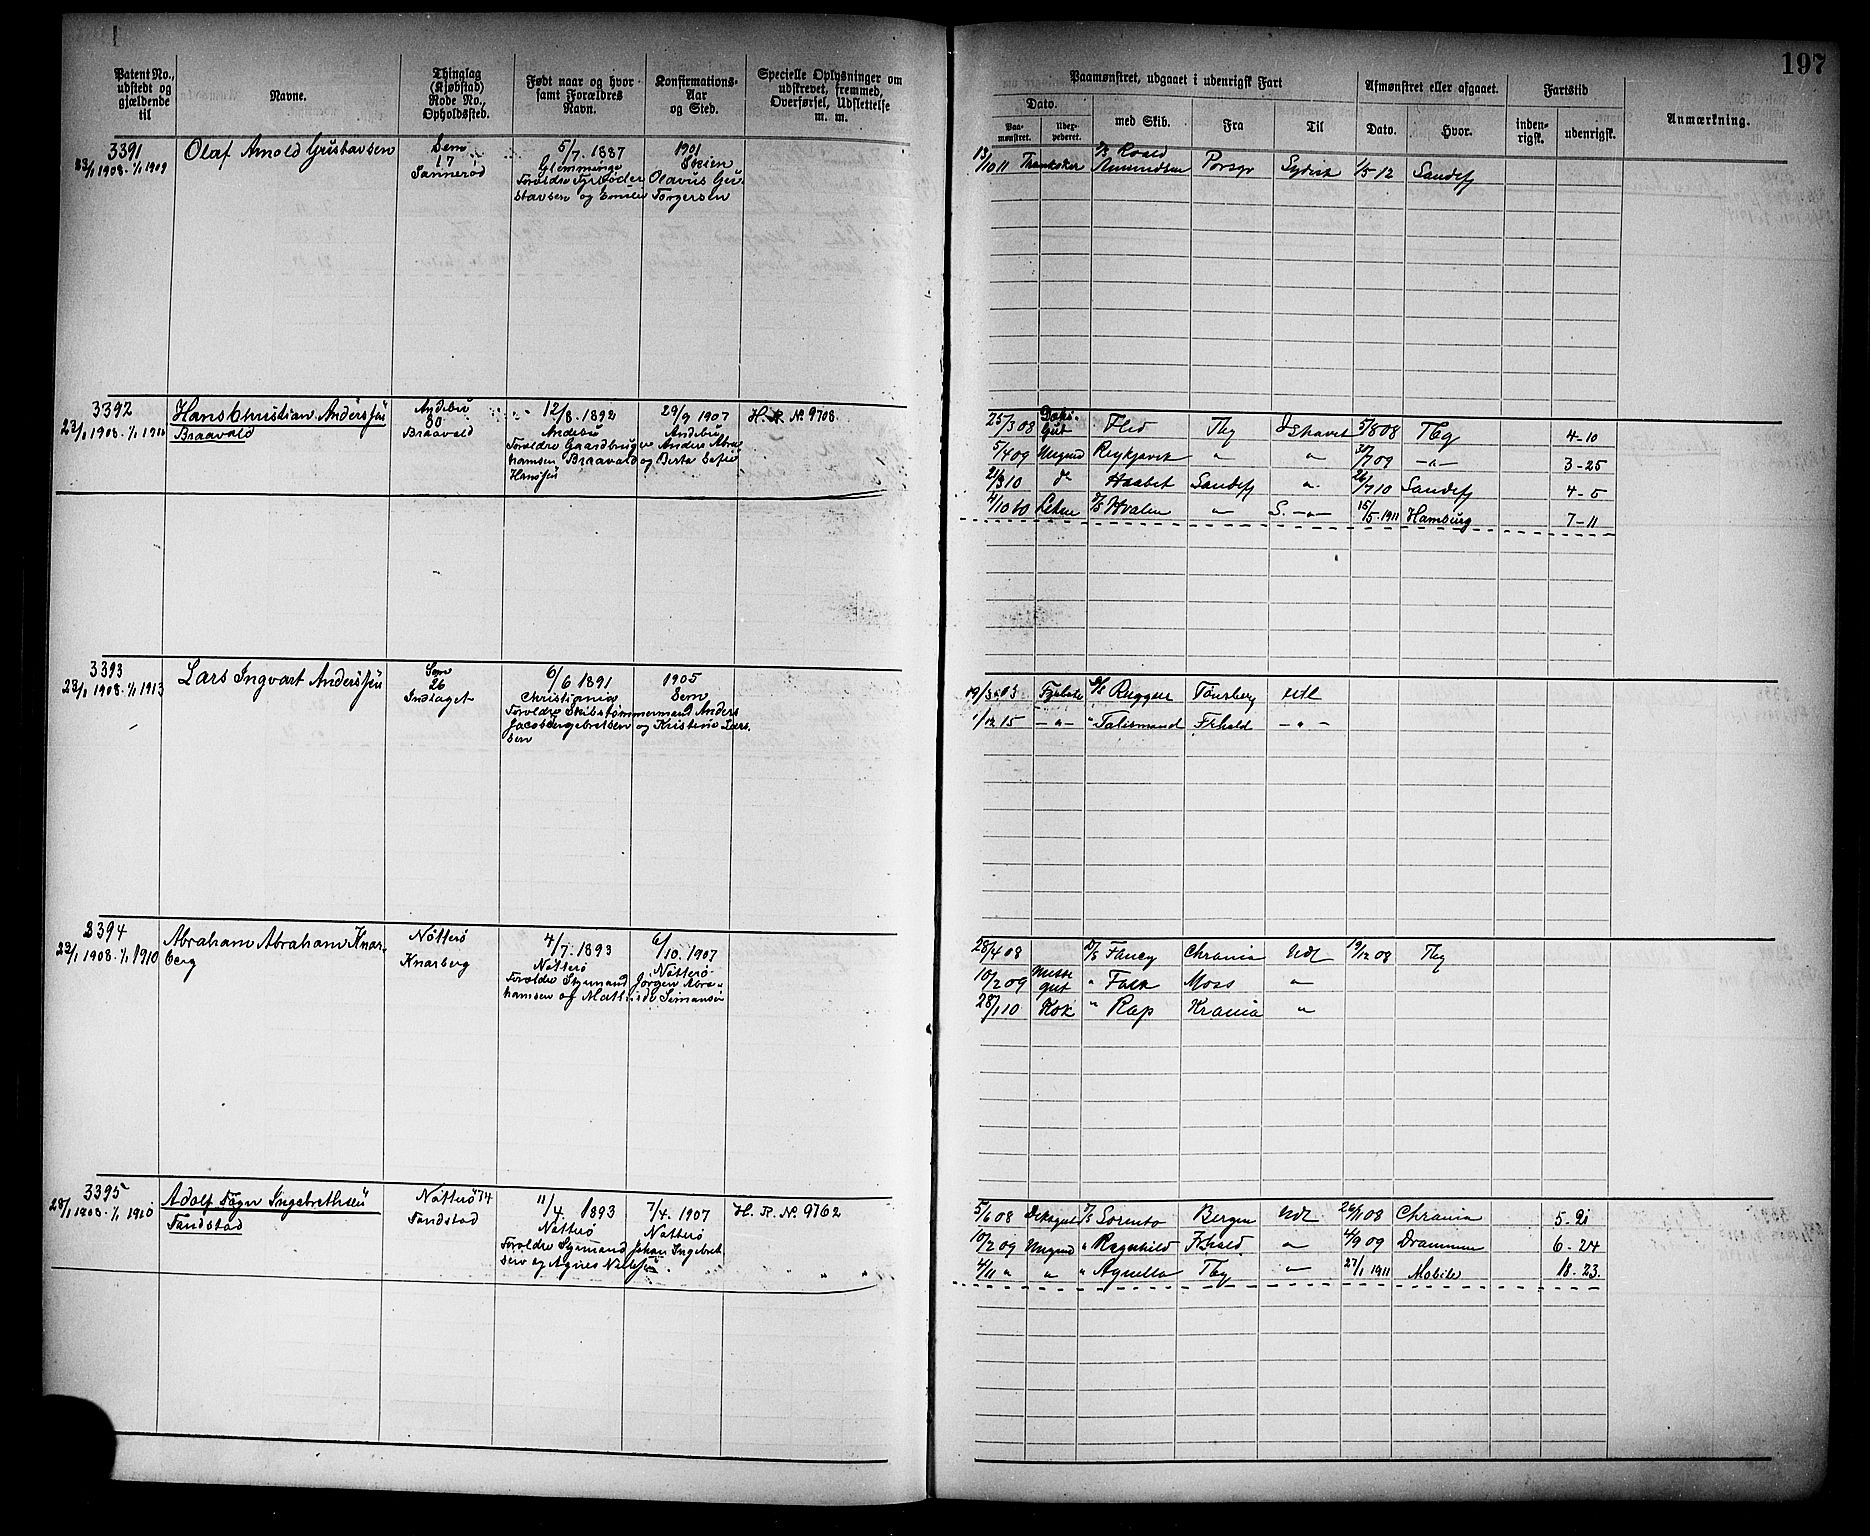 197
Patent No., udstedt og gjældende til
Navne.
Thinglag (Kjøbstad) Rode No., Opholdssted.
Født naar og hvor samt Forældres Navn.
Konfirmations-Aar og Sted.
Specielle Oplysninger om udskrevet, fremmed, Overførsel, Udslettelse m. m.
Paamønstret, udgaaet i udenrigsk Fart
Dato.
Paa-mønstret.
Udex-pederet.
med Skib.
Fra
Til
Afmønstret eller afgaaet.
Dato.
Hvor.
Fartstid
inden-rigsk.
udenrigsk.
Anmærkning.
3391
23/1 1908 - 1/1 1909
Olaf Arnold Gustavsen
Sem
17
Sannerød
5/7. 1887
Glemminge
Forældre Fyrbøder Olavus Gu-
stavsen og Emilie Torgersen
1901
Skien
13/10 11 Roald
Amundsen Porsgr Sydish 1/5-12 Sandefj
3392
23/1 1908 - 1/1 1910
Hans Christian Anderssen
Braavald
Andebu
80
Braavald
12/8. 1892
Andebu
Forældre Gaardbruger Anders Abra-
hamsen Braavald og Berta Sofie
Hanssen
29/9 1907
Andebu
H. R. No. 9708.
25/3 08 Dæks-
gut Flid Tbg Ishavet 5/8 08 Tbg 4-10
5/4 09 Ungmd Reykjavik " " 30/7 09 -"- 3-25
21/3 10 do Haabet Sandefj " 26/7 10 Sandefj 4-5
4/10 10 Letm D/S Hvalen " S. -"- 15/5-1911 Hamburg 7-11
3393
23/1 1908 - 1/1 1913
Lars Ingvart Anderssen
Sem
26
Indlaget
6/6 1891
Christiania
Forældre Skibstømmermand Anders
Jacob Ingebretsen og Kristine Lars-
sen
1905
Sem
19/3 13 Fyrbøder D/S Ruggen Tønsberg Utl
1/12 15 -"- " Talismand Frhald -"-
3394
23/1 1908 - 1/1 1910
Abraham Abraham Knar-
berg
Nøtterø
Knarberg
4/7. 1893
Nøtterø
Forældre Sjømand Jørgen Abra-
hamsen og Mathilde Simonsen
6/10. 1907
Nøtterø
28/4 08 D/S Fancy Chrania Udl 19/12 08 Tbg
10/2 09 Messe
gut " Falk Moss "
28/1 10 Kok " Rap Krania "
3395
23/1 1908 - 1/1 1910
Adolf Fagn Ingebrethsen
Tandstad
Nøtterø 74
Tandstad
11/4. 1893
Nøtterø
Forældre Sjømand Johan Ingebret-
sen og Agnes Nilssen
7/4. 1907
Nøtterø
H. R. No. 9762
5/6 08 Dæksgut D/S Sorento Bergen Udl 26/11 08 Chrania 5-21
10/2 09 Ungmd " Ragnhild Frhald " 4/9 09 Drammen 6-24
4/11 " " " Agnella Tbg " 27/1 1911 Mobile 18-23.